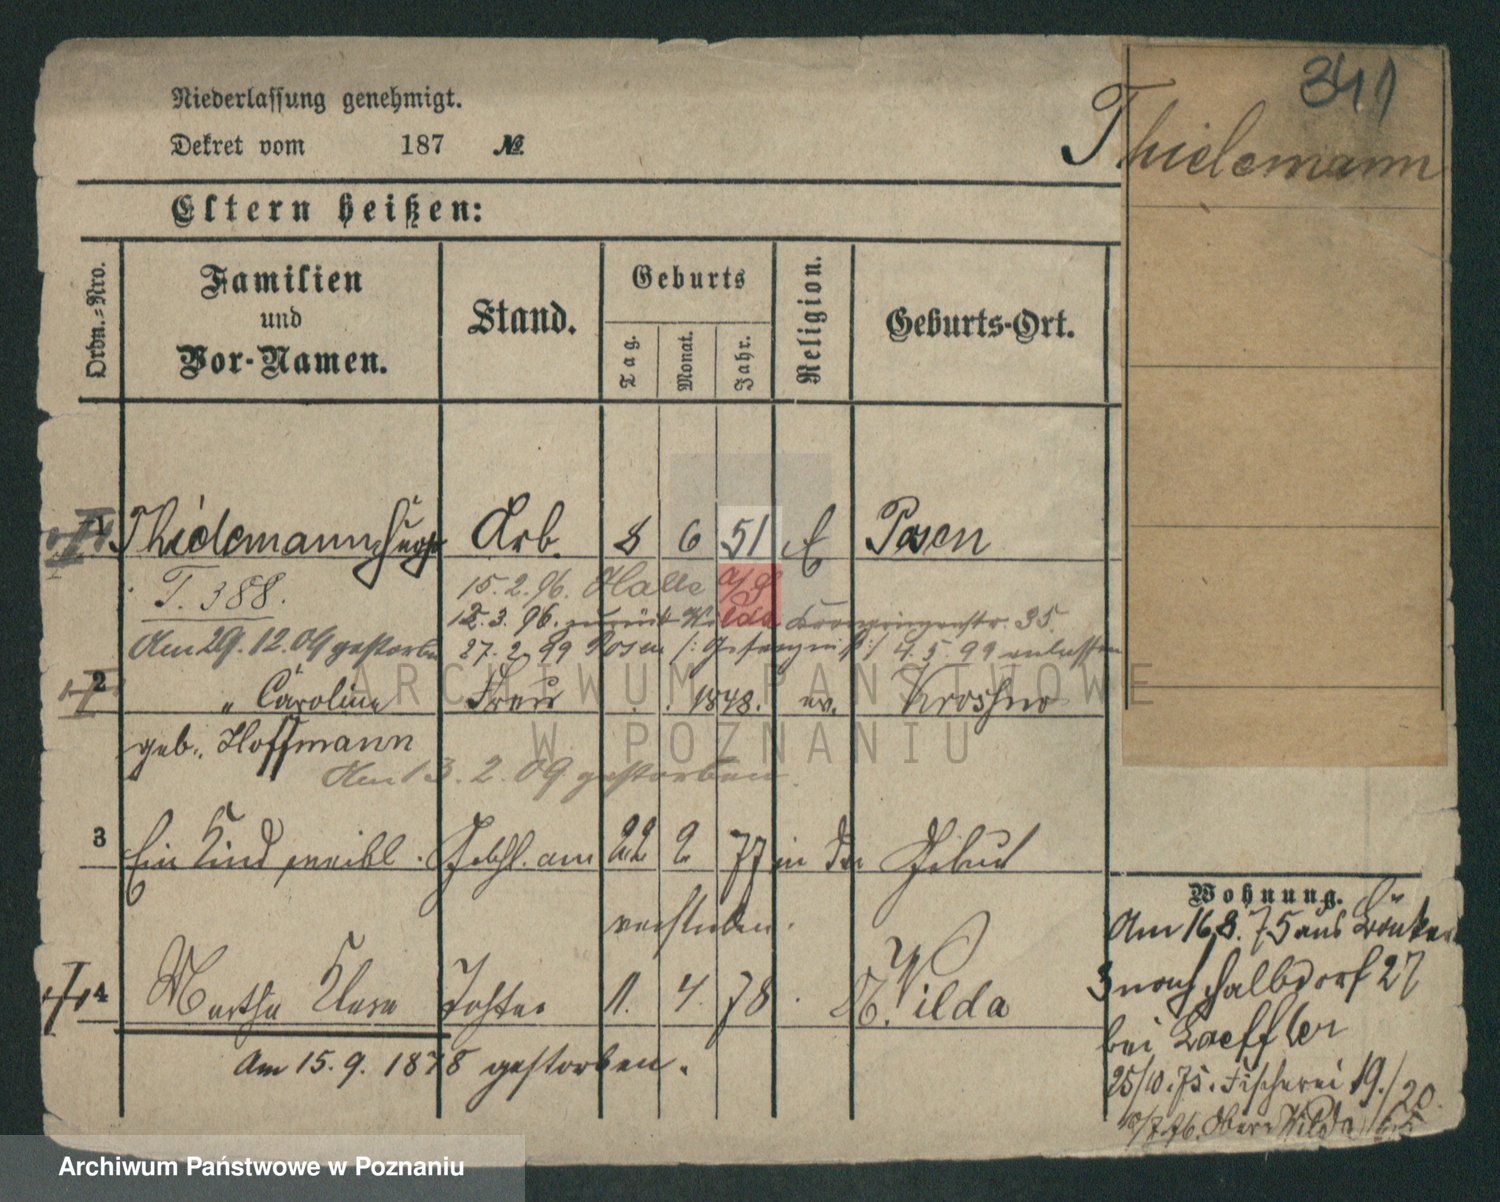 341
Niederlassung genehmigt.
Thielemann
Dekret vom 187 №
Eltern heißen:
Ordn.-Nro.
Familien und Vor-Namen.
Stand.
Geburts
Tag.
Monat.
Jahr.
Religion.
Geburts-Ort.
1 Thielemann, Hugo Arb. 8 6 51 Posen
T. 388. 15.2.96. Halle a/S
12.3.96. zurück Wilda Kronprinzenstr. 35.
Am 29.12.09 gestorben 27.2.99 Posen /: Gefängniß :/ 4.5.99 entlassen
2 " Caroline Frau 1848. ev. Kroshno
geb. Hoffmann
Am 13.2.09 gestorben
3 Ein Kind weibl. Geschl. am 22 2 77 in der Geburt
verstorben.
4 Martha Klara Tochter 11. 4. 78 Wilda
Am 15.9.1878 gestorben.
Wohnung.
Am 16.8.75 aus
3 nach Halbdorf 27
bei Loeffler
25/10.75. Fischerei 19./20.
Ober Wilda
ARCHIWUM PAŃSTWOWE
W POZNANIU
Archiwum Państwowe w Poznaniu